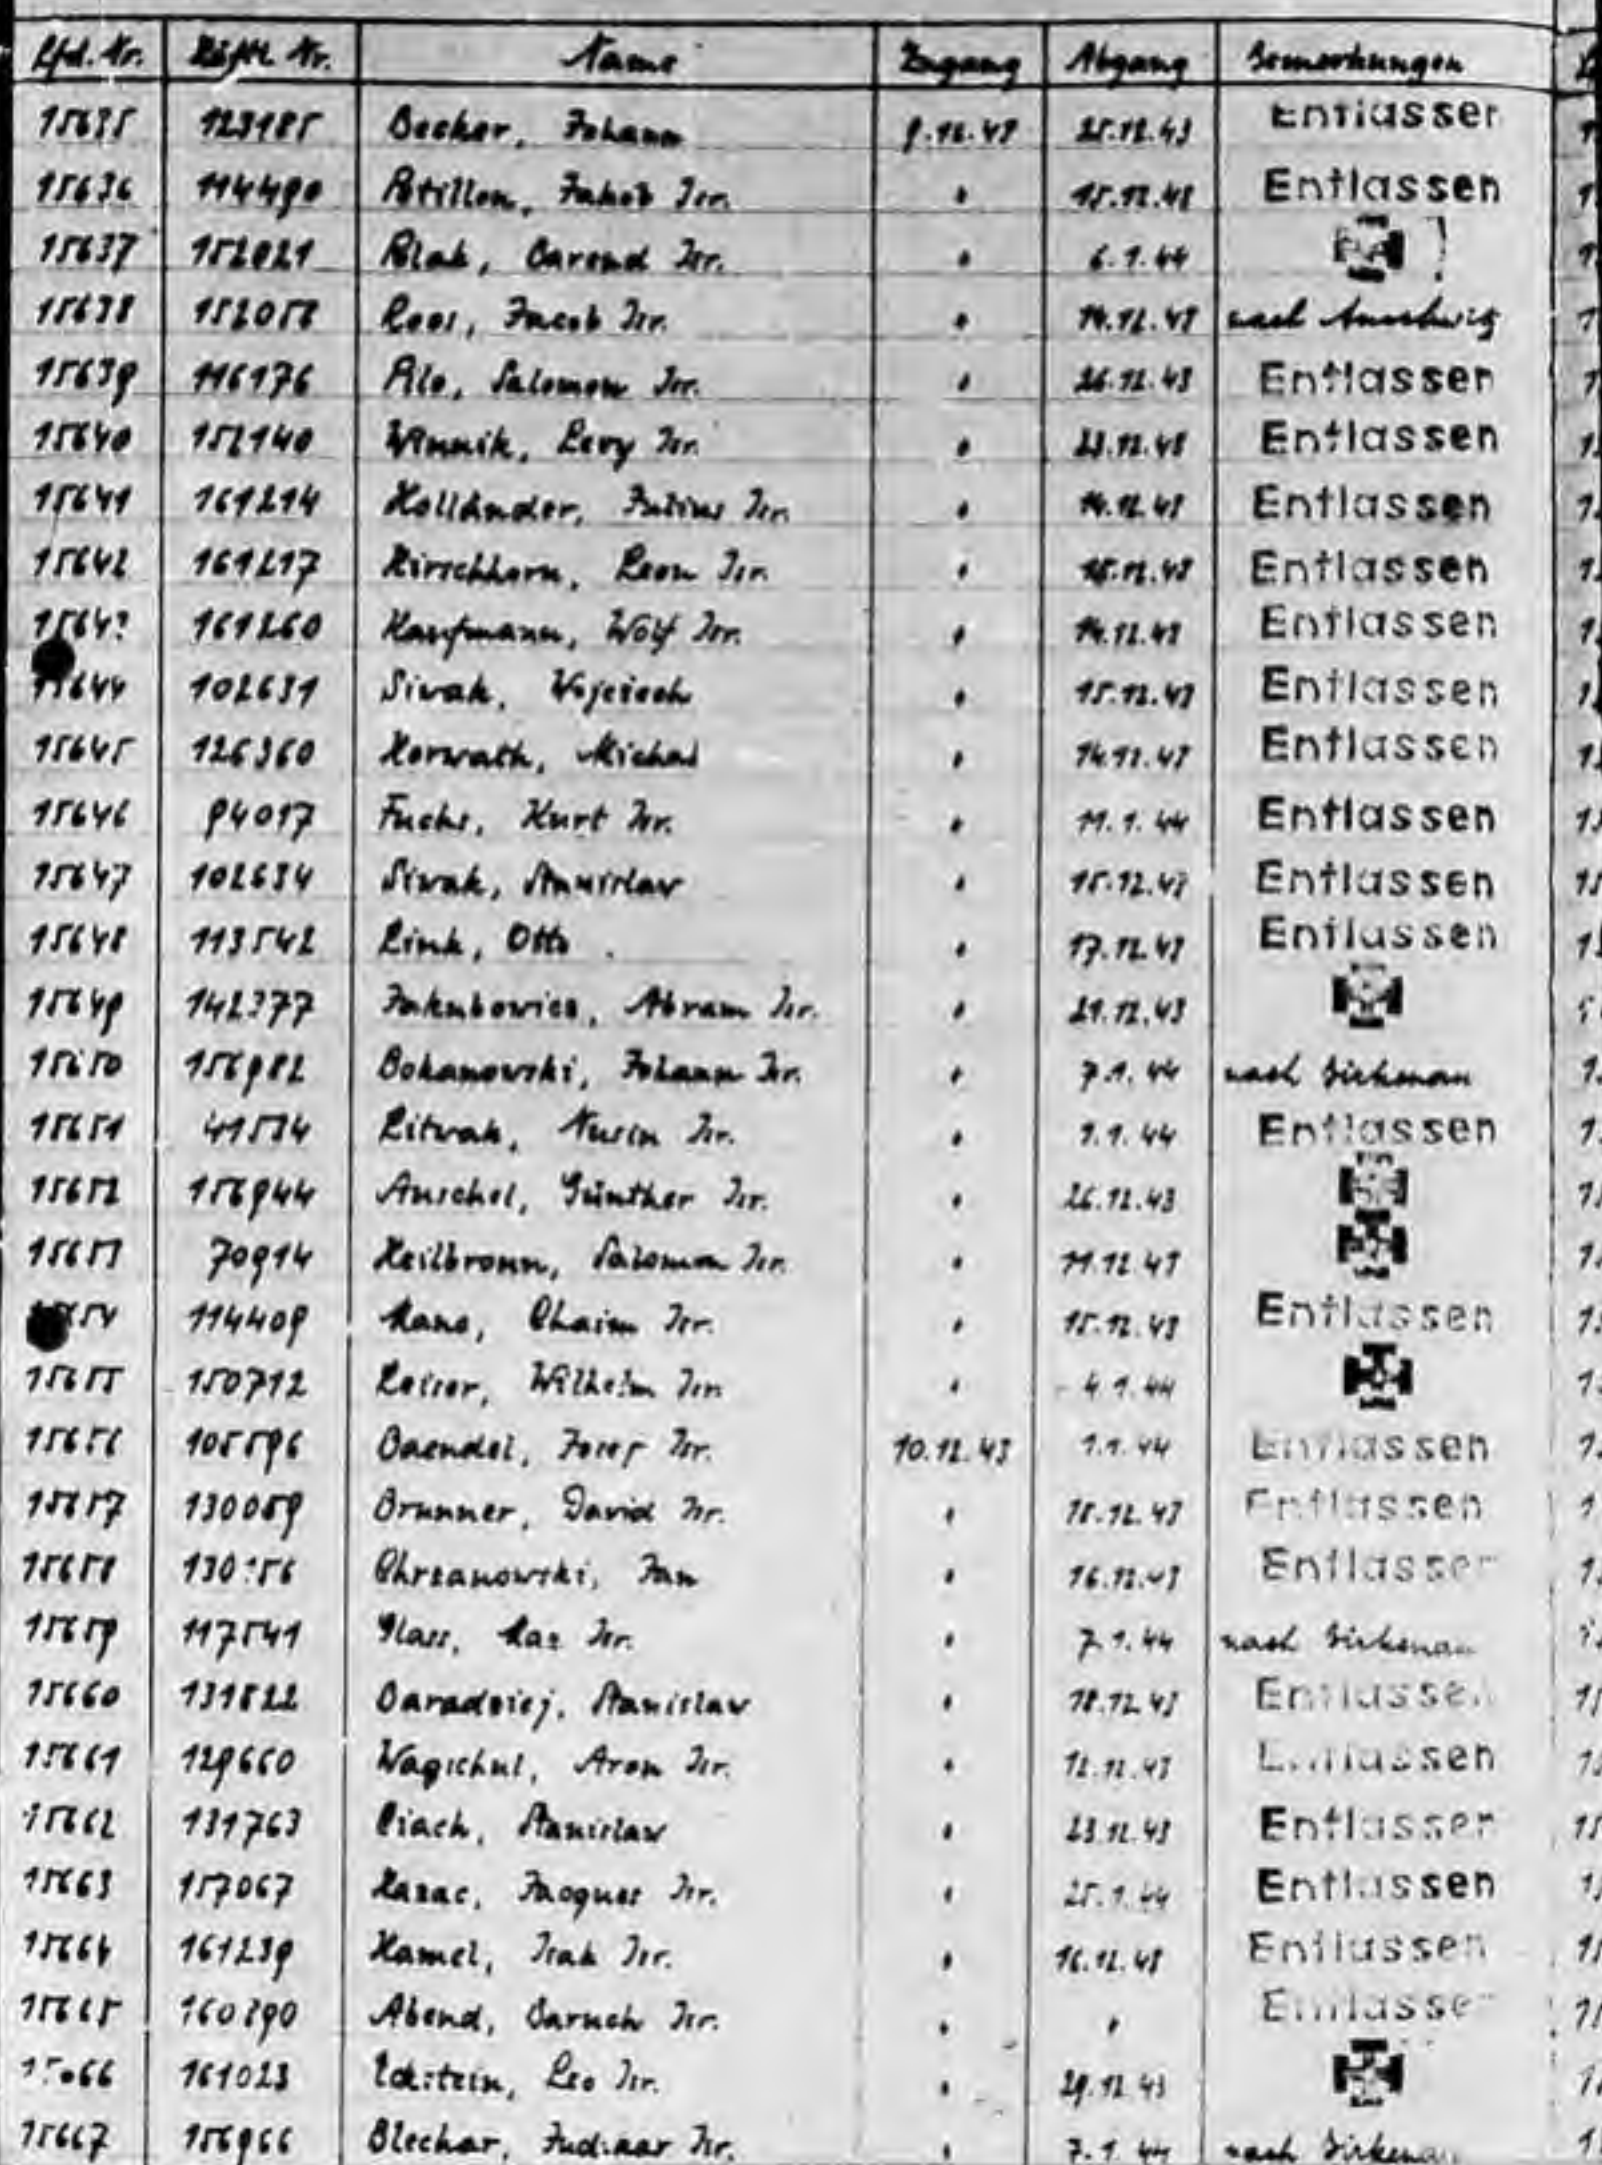 Lfd. Nr. Häftl. Nr. Name Zugang Abgang Bemerkungen
15635 123185 Becker, Johann 9.12.43 25.12.43 Entlassen
15636 114490 Isr. " 15.12.43 Entlassen
15637 152021 Blak, Barend Isr. " 6.1.44
15638 152058 Roos, Jacob Isr. " 14.12.43 nach Auschwitz
15639 116176 Salomon Isr. " 26.12.43 Entlassen
15640 152140 Winnik, Levy Isr. " 23.12.43 Entlassen
15641 161214 Holländer, Julius Isr. " 14.12.43 Entlassen
15642 161217 Hirschhorn, Leon Isr. " Entlassen
15643 161260 Kaufmann, Wolf Isr. " 14.12.43 Entlassen
15644 102631 Siwak, Wojciech " 15.12.43 Entlassen
15645 126360 Horwath, Michal " 14.12.43 Entlassen
15646 94017 Fuchs, Kurt Isr. " 11.1.44 Entlassen
15647 102634 Siwak, Stanislaw " 15.12.43 Entlassen
15648 113542 Link, Otto " 17.12.43 Entlassen
15649 142377 Jakubowicz, Abram Isr. " 29.12.43
15650 156982 Bokanowski, Johann Isr. " 7.1.44 nach Birkenau
15651 41534 Litwak, Nusin Isr. " 1.1.44 Entlassen
15652 156944 Anschel, Günther Isr. " 26.12.43
15653 70914 Heilbronn, Salomon Isr. " 11.12.43
114409 Mano, Chaim Isr. " 15.12.43 Entlassen
15655 150712 Leiser, Wilhelm Isr. " 4.1.44
15656 105596 Baendel, Josef Isr. 10.12.43 1.1.44 Entlassen
15657 130059 Brunner, David Isr. " Entlassen
15658 Chrzanowski, Jan " 16.12.43 Entlassen
15659 117541 Glass, Max Isr. " 7.1.44 nach Birkenau
15660 131822 Baradziej, Stanislaw " 18.12.43 Entlassen
15661 129660 Wagschul, Aron Isr. " 12.12.43 Entlassen
15662 131763 Ciach, Stanislaw " 23.12.43 Entlassen
15663 157067 Jacques Isr. " 25.1.44 Entlassen
15664 161239 Hamel, Isak Isr. " 16.12.43 Entlassen
15665 160390 Abend, Baruch Isr. " " Entlassen
15666 161023 Eckstein, Leo Isr. " 29.12.43
15667 156966 Blechar, Isr. " 7.1.44 nach Birkenau